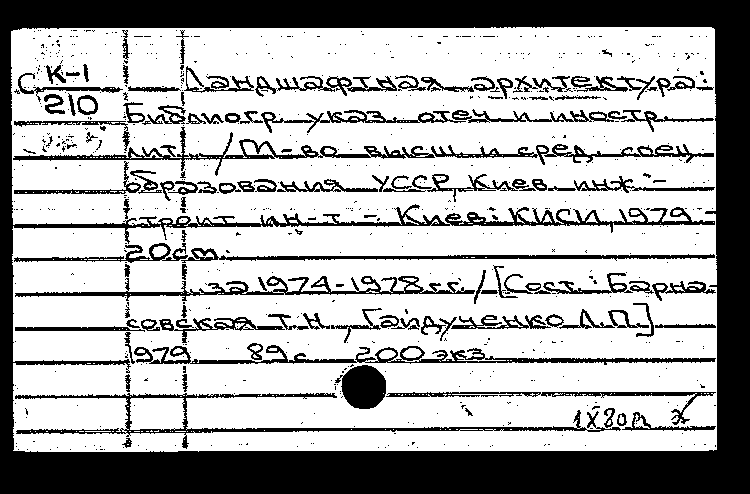 С К-1 Ландшафтная архитектура:
210 Библиогр. указ. отеч и иностр.
лит. / М-во высш. и сред. спец
образования УССР, Киев. инж.-
строит ин-т. - Киев: КИСИ, 1979. -
20см.
..за 1974-1978гг. / [Сост.: Барна-
совская Т.Н., Гайдученко Л.П.]
1979. 89с 200 экз.
1X80г